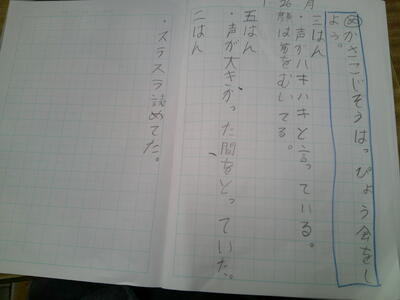 1 26 月
めかさこじぞうはっぴょう会をし
よう。
三はん
・声がハキハキと言っている。
顔は前をむいてる。
五はん
・声が大きかった間をとっていた。
二はん
・スラスラ読めてた。